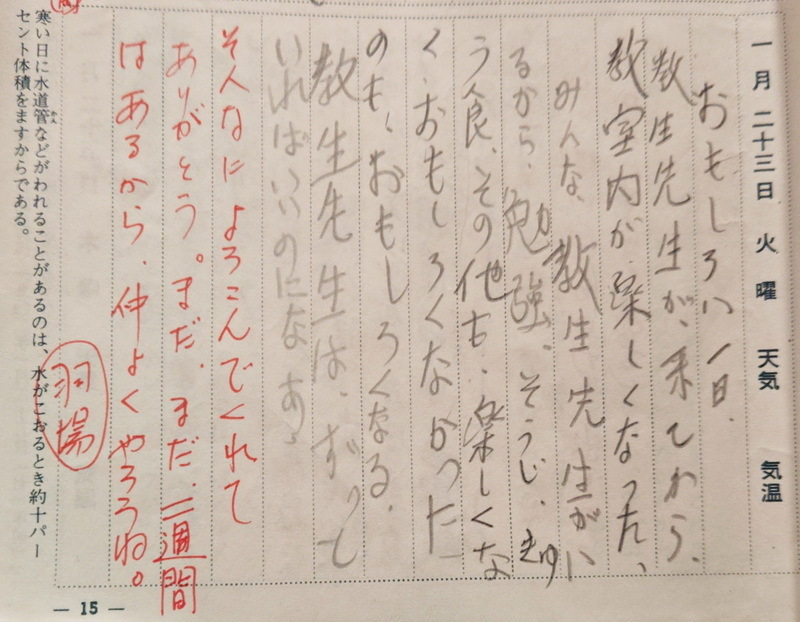 一月二十三日 火曜 天気 気温
おもしろい一日.
教生先生が、来てから、
教室内が、楽しくなった、
みんな、教生先生がい
るから、勉強、そうじ、きゅ
う食、その他も、楽しくな
く、おもしろくなかった
のも、おもしろくなる.
教生先生は、ずっと
いればいいのになあ、
そんなによろこんでくれて
ありがとう。まだ、まだ、二週間
はあるから、仲よくやろうね。
羽場
寒い日に水道管などがわれることがあるのは、水がこおるとき約十パー
かん
セント体積をますからである。
— 15 —